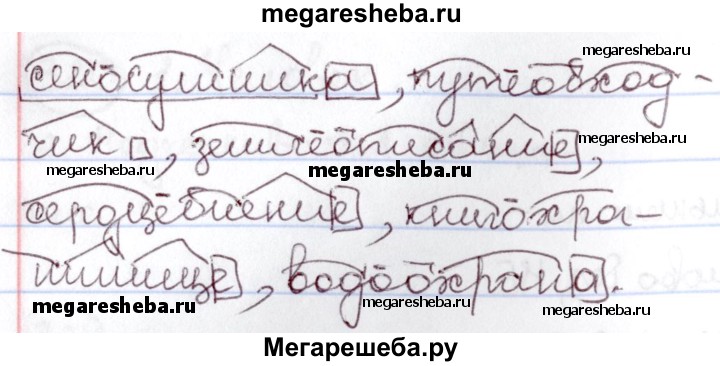 megaresheba.ru
сеносушилка, путеобход-
megaresheba.ru
чик, землеописание,
megaresheba.ru
megaresheba.ru
megaresheba.ru
сердцебиение, книгохра-
нилище, водоохрана.
megaresheba.ru
megaresheba.ru
megaresheba.ru
Мегарешеба.ру